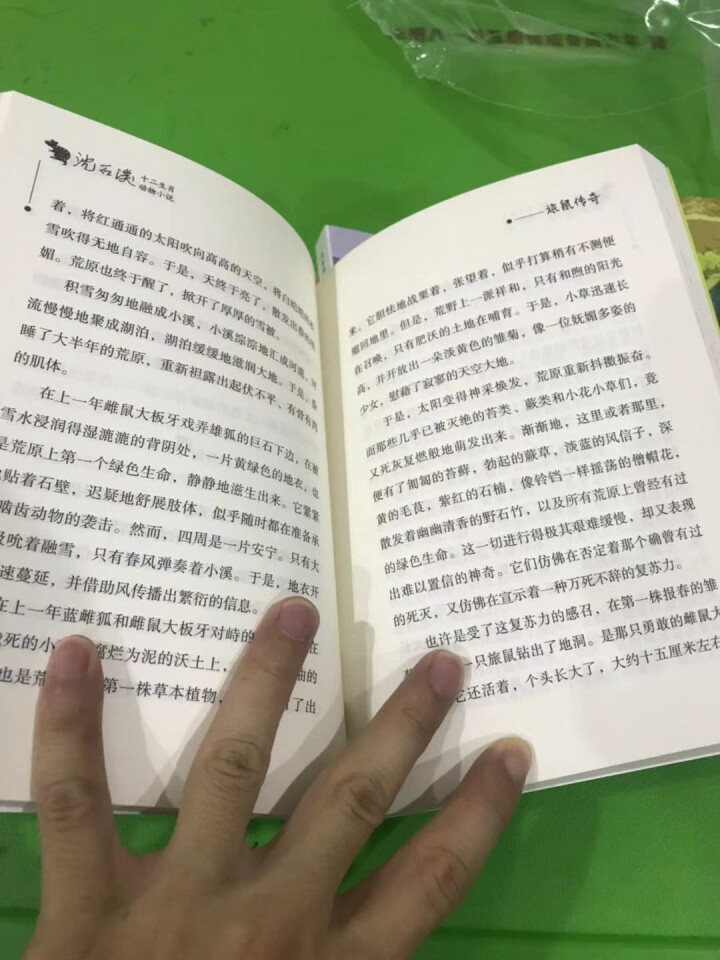 沈石溪 十二生肖
动物小说
着，将红通通的太阳吹向高高的天空，将白皑皑的冰
雪吹得无地自容。于是，天终于亮了，散发出春的
媚。荒原也终于醒了，掀开了厚厚的雪被。
积雪匆匆地融成小溪，小溪淙淙地汇成河流，河
流慢慢地聚成湖泊，湖泊缓缓地滋润大地。于是，
睡了大半年的荒原，重新袒露出起伏不平、有骨有肉
的肌体。
在上一年雌鼠大板牙戏弄雄狐的巨石下边，在被
雪水浸润得湿漉漉的背阴处，一片黄绿色的地衣，也
是荒原上第一个绿色生命，静静地滋生出来。它紧紧
贴着石壁，迟疑地舒展肢体，似乎随时都在准备承
啮齿动物的袭击。然而，四周是一片安宁。只有大
吮着融雪，只有春风弹奏着小溪。于是，地衣开
速蔓延，并借助风传播出繁衍的信息。
在上一年蓝雌狐和雌鼠大板牙对峙的 在
死的小 腐烂为泥的沃土上， 的
也是荒 第一株草本植物， 了出
旅鼠传奇
来。它胆怯地战栗着，张望着，似乎打算稍有不测便
缩回地里。但是，荒野上一派祥和，只有和煦的阳光
在召唤，只有肥沃的土地在哺育。于是，小草迅速长
高，并开放出一朵淡黄色的雏菊，像一位妩媚多姿的
少女，慰藉了寂寥的天空大地。
于是，太阳变得神采焕发，荒原重新抖擞振奋。
而那些几乎已被灭绝的苔类、蕨类和小花小草们，竟
又死灰复燃般地萌发出来。渐渐地，这里或者那里，
便有了匍匐的苔藓，勃起的蕨草，淡蓝的风信子，深
黄的毛茛，紫红的石楠，像铃铛一样摇荡的僧帽花，
散发着幽幽清香的野石竹，以及所有荒原上曾经有过
的绿色生命。这一切进行得极其艰难缓慢，却又表现
出难以置信的神奇。它们仿佛在否定着那个确曾有过
的死灭，又仿佛在宣示着一种万死不辞的复苏力。
也许是受了这复苏力的感召，在第一株报春的雏
一只旅鼠钻出了地洞。是那只勇敢的雌鼠大
它还活着，个头长大了，大约十五厘米左右